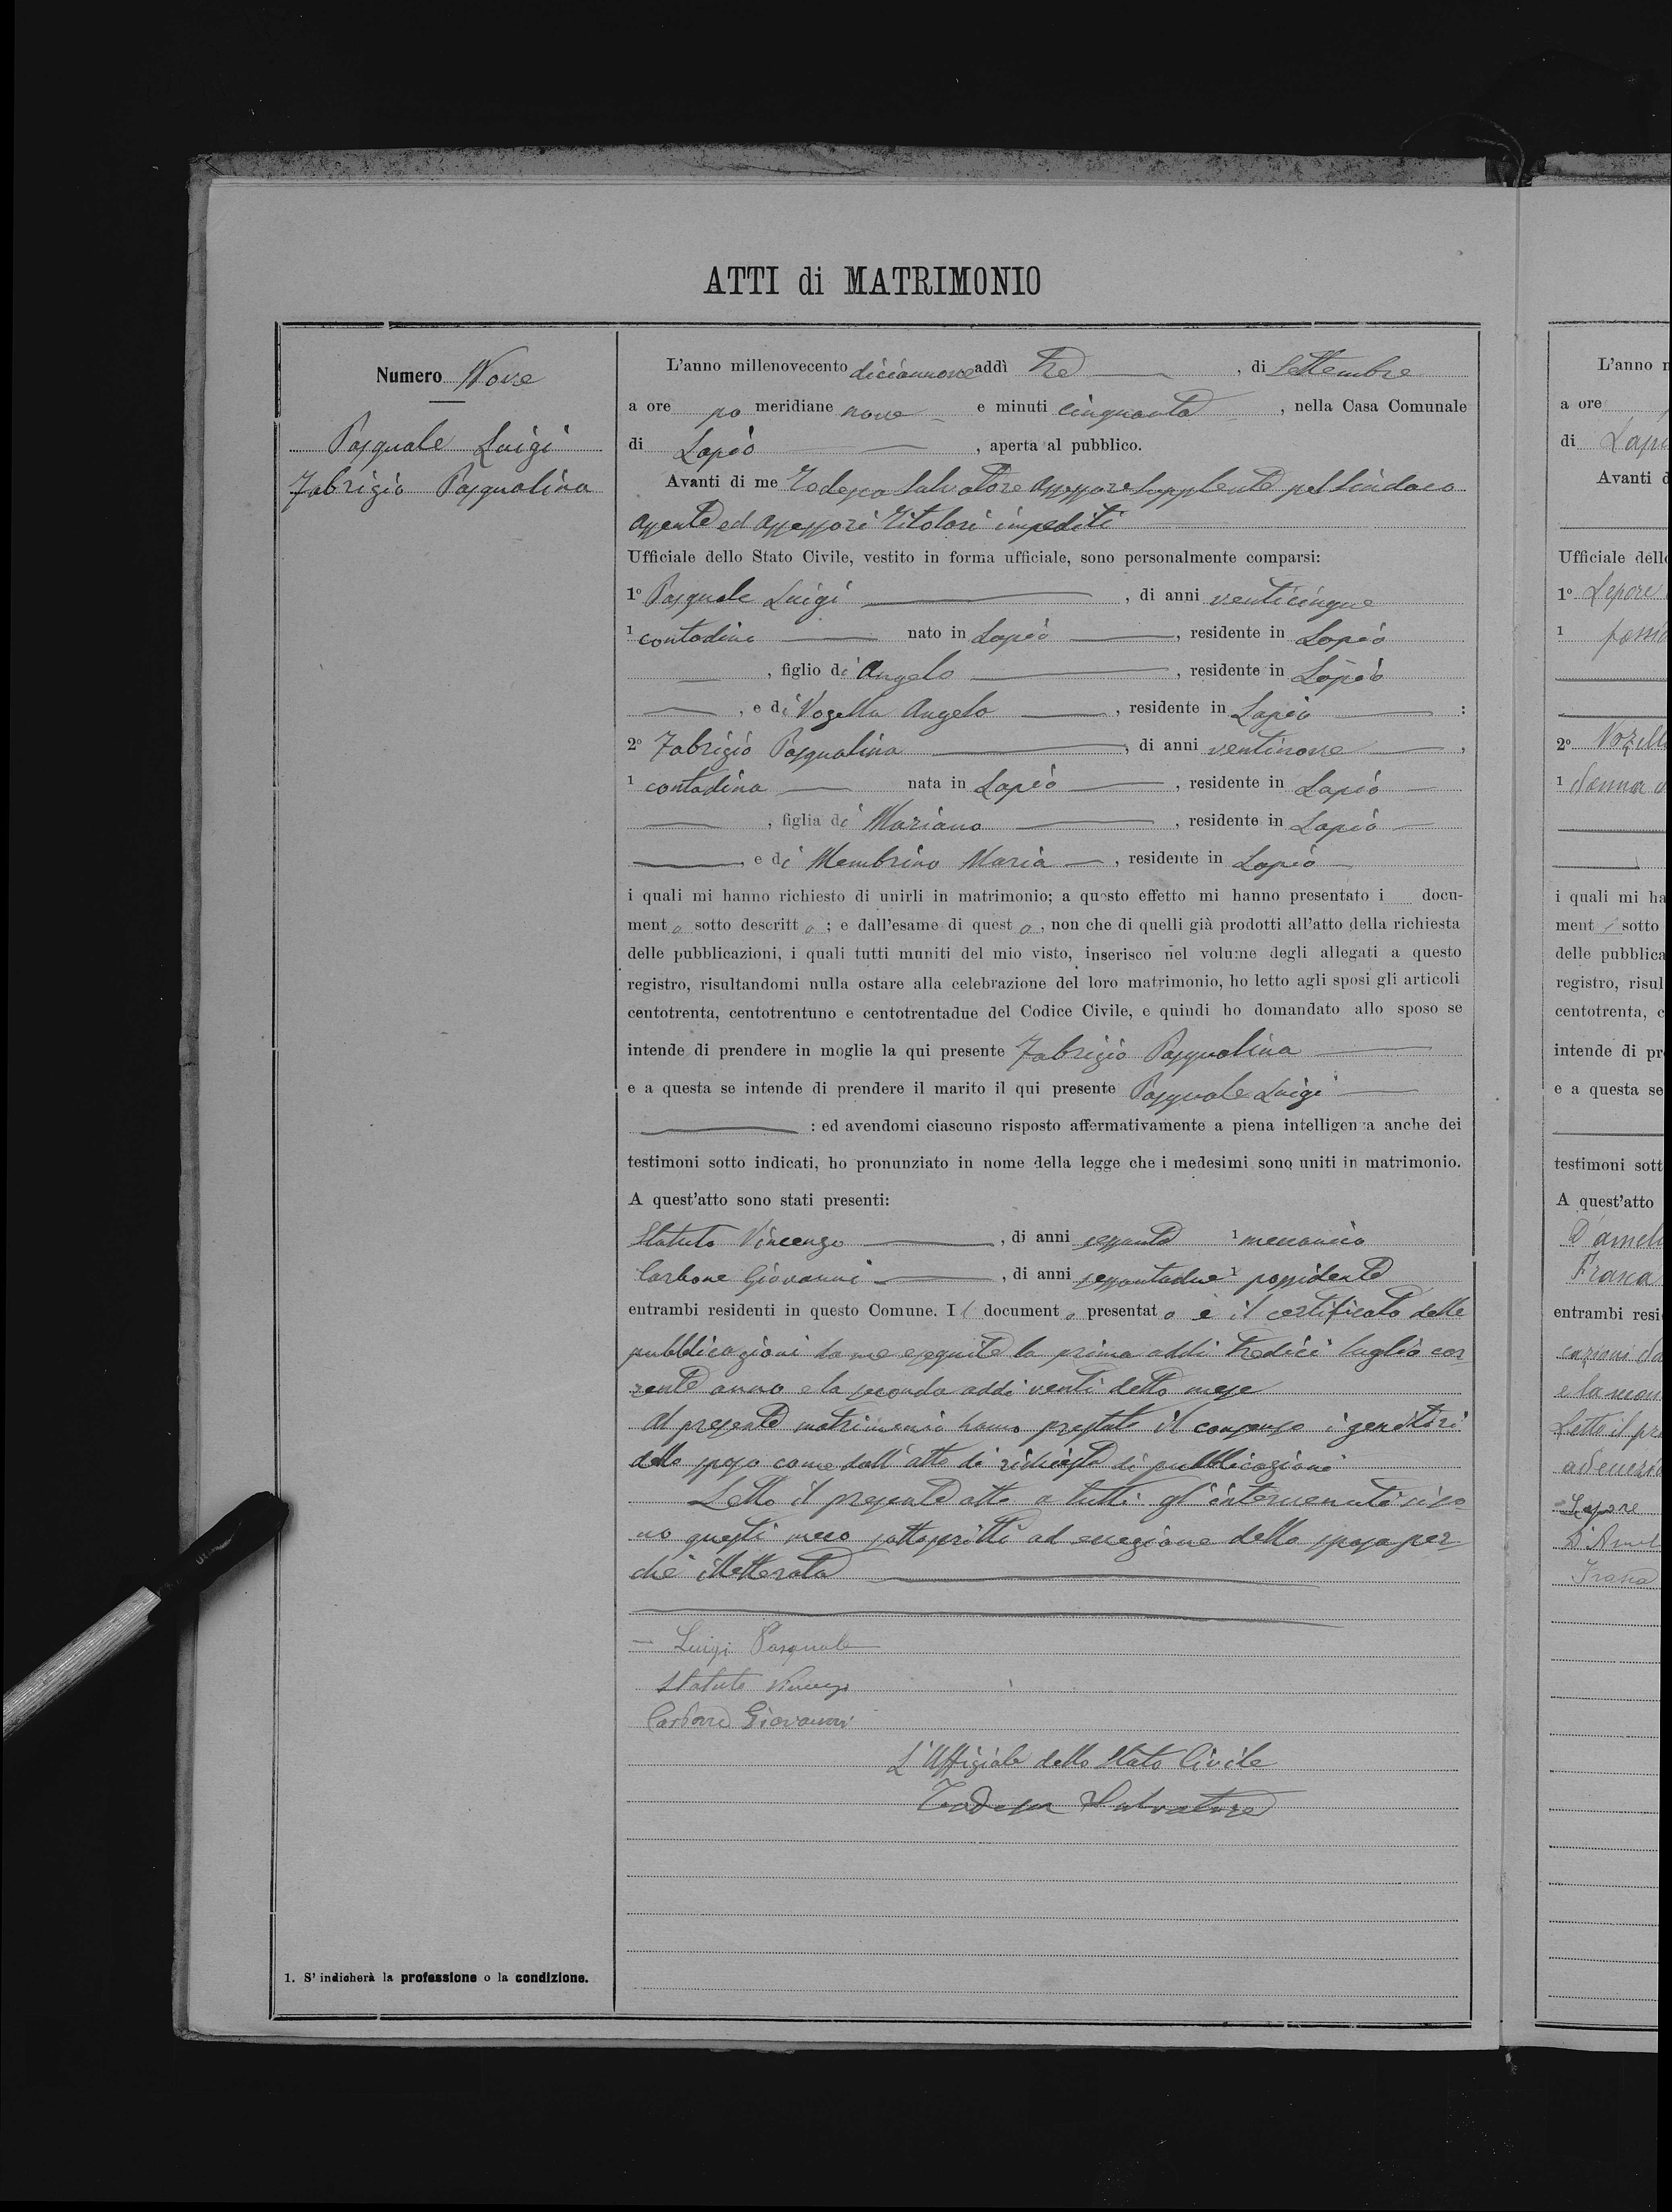 ATTI di MATRIMONIO
Numero Nove
Pasquale Luigi
Fabrizio Pasqualina
1. S' indicherà la professione o la condizione.
L'anno millenovecento diciannove addì tre, di Settembre
a ore po meridiane nove e minuti cinquanta, nella Casa Comunale
di Lapio, aperta al pubblico.
Avanti di me Todesca Salvatore assessore supplente pel Sindaco
assente ed assessori titolari impediti
Ufficiale dello Stato Civile, vestito in forma ufficiale, sono personalmente comparsi:
1º Pasquale Luigi, di anni venticinque
1 contadino nato in Lapio, residente in Lapio
, figlio di Angelo, residente in Lapio
, e di Vozella Angela, residente in Lapio :
2º Fabrizio Pasqualina, di anni ventinove,
1 contadina nata in Lapio, residente in Lapio
, figlia di Mariano, residente in Lapio
, e di Membrino Maria, residente in Lapio
i quali mi hanno richiesto di unirli in matrimonio; a questo effetto mi hanno presentato i docu-
mento sotto descritto; e dall'esame di questo, non che di quelli già prodotti all'atto della richiesta
delle pubblicazioni, i quali tutti muniti del mio visto, inserisco nel volume degli allegati a questo
registro, risultandomi nulla ostare alla celebrazione del loro matrimonio, ho letto agli sposi gli articoli
centotrenta, centotrentuno e centotrentadue del Codice Civile, e quindi ho domandato allo sposo se
intende di prendere in moglie la qui presente Fabrizio Pasqualina
e a questa se intende di prendere il marito il qui presente Pasquale Luigi
: ed avendomi ciascuno risposto affermativamente a piena intelligenza anche dei
testimoni sotto indicati, ho pronunziato in nome della legge che i medesimi sono uniti in matrimonio.
A quest'atto sono stati presenti:
Statuto Vincenzo, di anni sessanta 1 meccanico
Carbone Giovanni, di anni sessantadue 1 possidente
entrambi residenti in questo Comune. Il documento presentato è il certificato delle
pubblicazioni da me eseguite la prima addì tredici luglio cor
rente anno e la seconda addì venti detto mese
Al presente matrimonio hanno prestato il consenso i genitori
dello sposo come dall'atto di richiesta di pubblicazioni
Letto il presente atto a tutti gl'intervenuti si so
no questi meco sottoscritti ad eccezione della sposa per
chè illetterata
Luigi Pasquale
Statuto Vincenzo
Carbone Giovanni
L'Uffiziale dello Stato Civile
Todesca Salvatore
L'anno
a ore
di Lapi
Avanti
Ufficiale dello
1º Lepore
1 possid
2º Vozella
1 donna
i quali mi ha
ment i sotto
delle pubblica
registro, risul
centotrenta, c
intende di pr
e a questa se
testimoni sott
A quest'atto
D'amel
Frasca
entrambi resi
cazioni da
Letto il pre
ad eccezio
Lepore
D'Amel